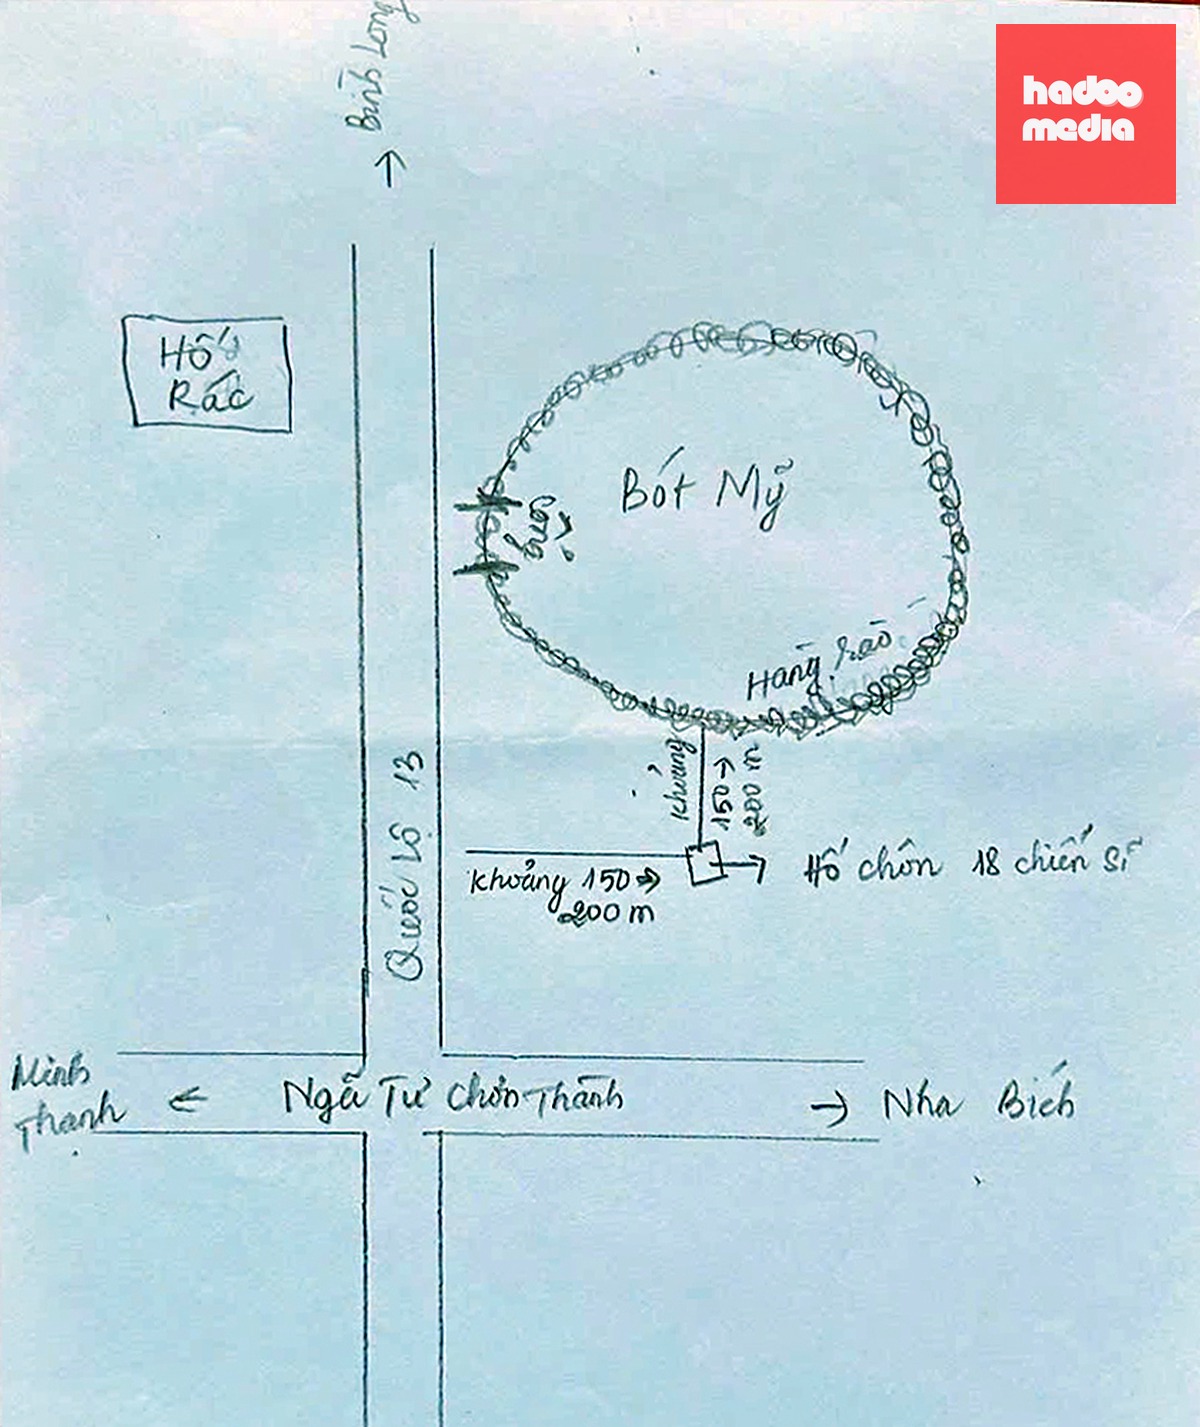 → Bình Long
hadoo
media
Hố
Rác
Bót Mỹ
Cổng
Hàng rào
Quốc Lộ 13
Khoảng
150 →
200 m
Khoảng 150 →
200 m
→ Hố chôn 18 chiến sĩ
Minh
Thạnh
← Ngã Tư Chơn Thành → Nha Bích